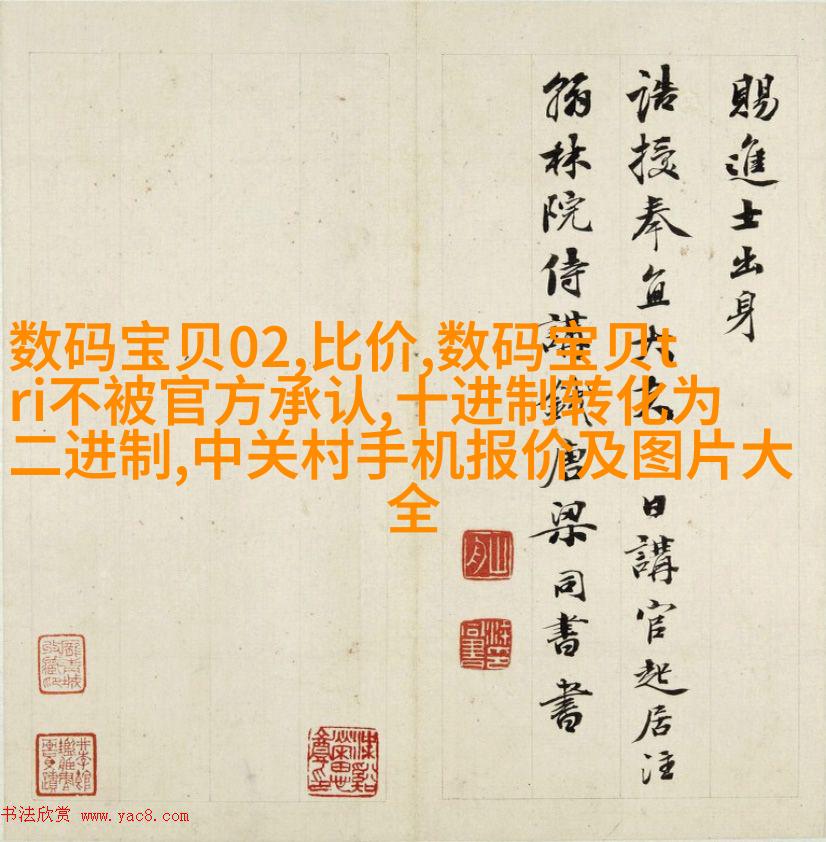 数码宝贝02,比价,数码宝贝t
ri不被官方承认,十进制转化为
二进制,中关村手机报价及图片大
全
賜進士出身
誥授奉直大夫日講官起居注
翰林院侍講錢唐梁同書書
书法欣赏 www.yac8.com